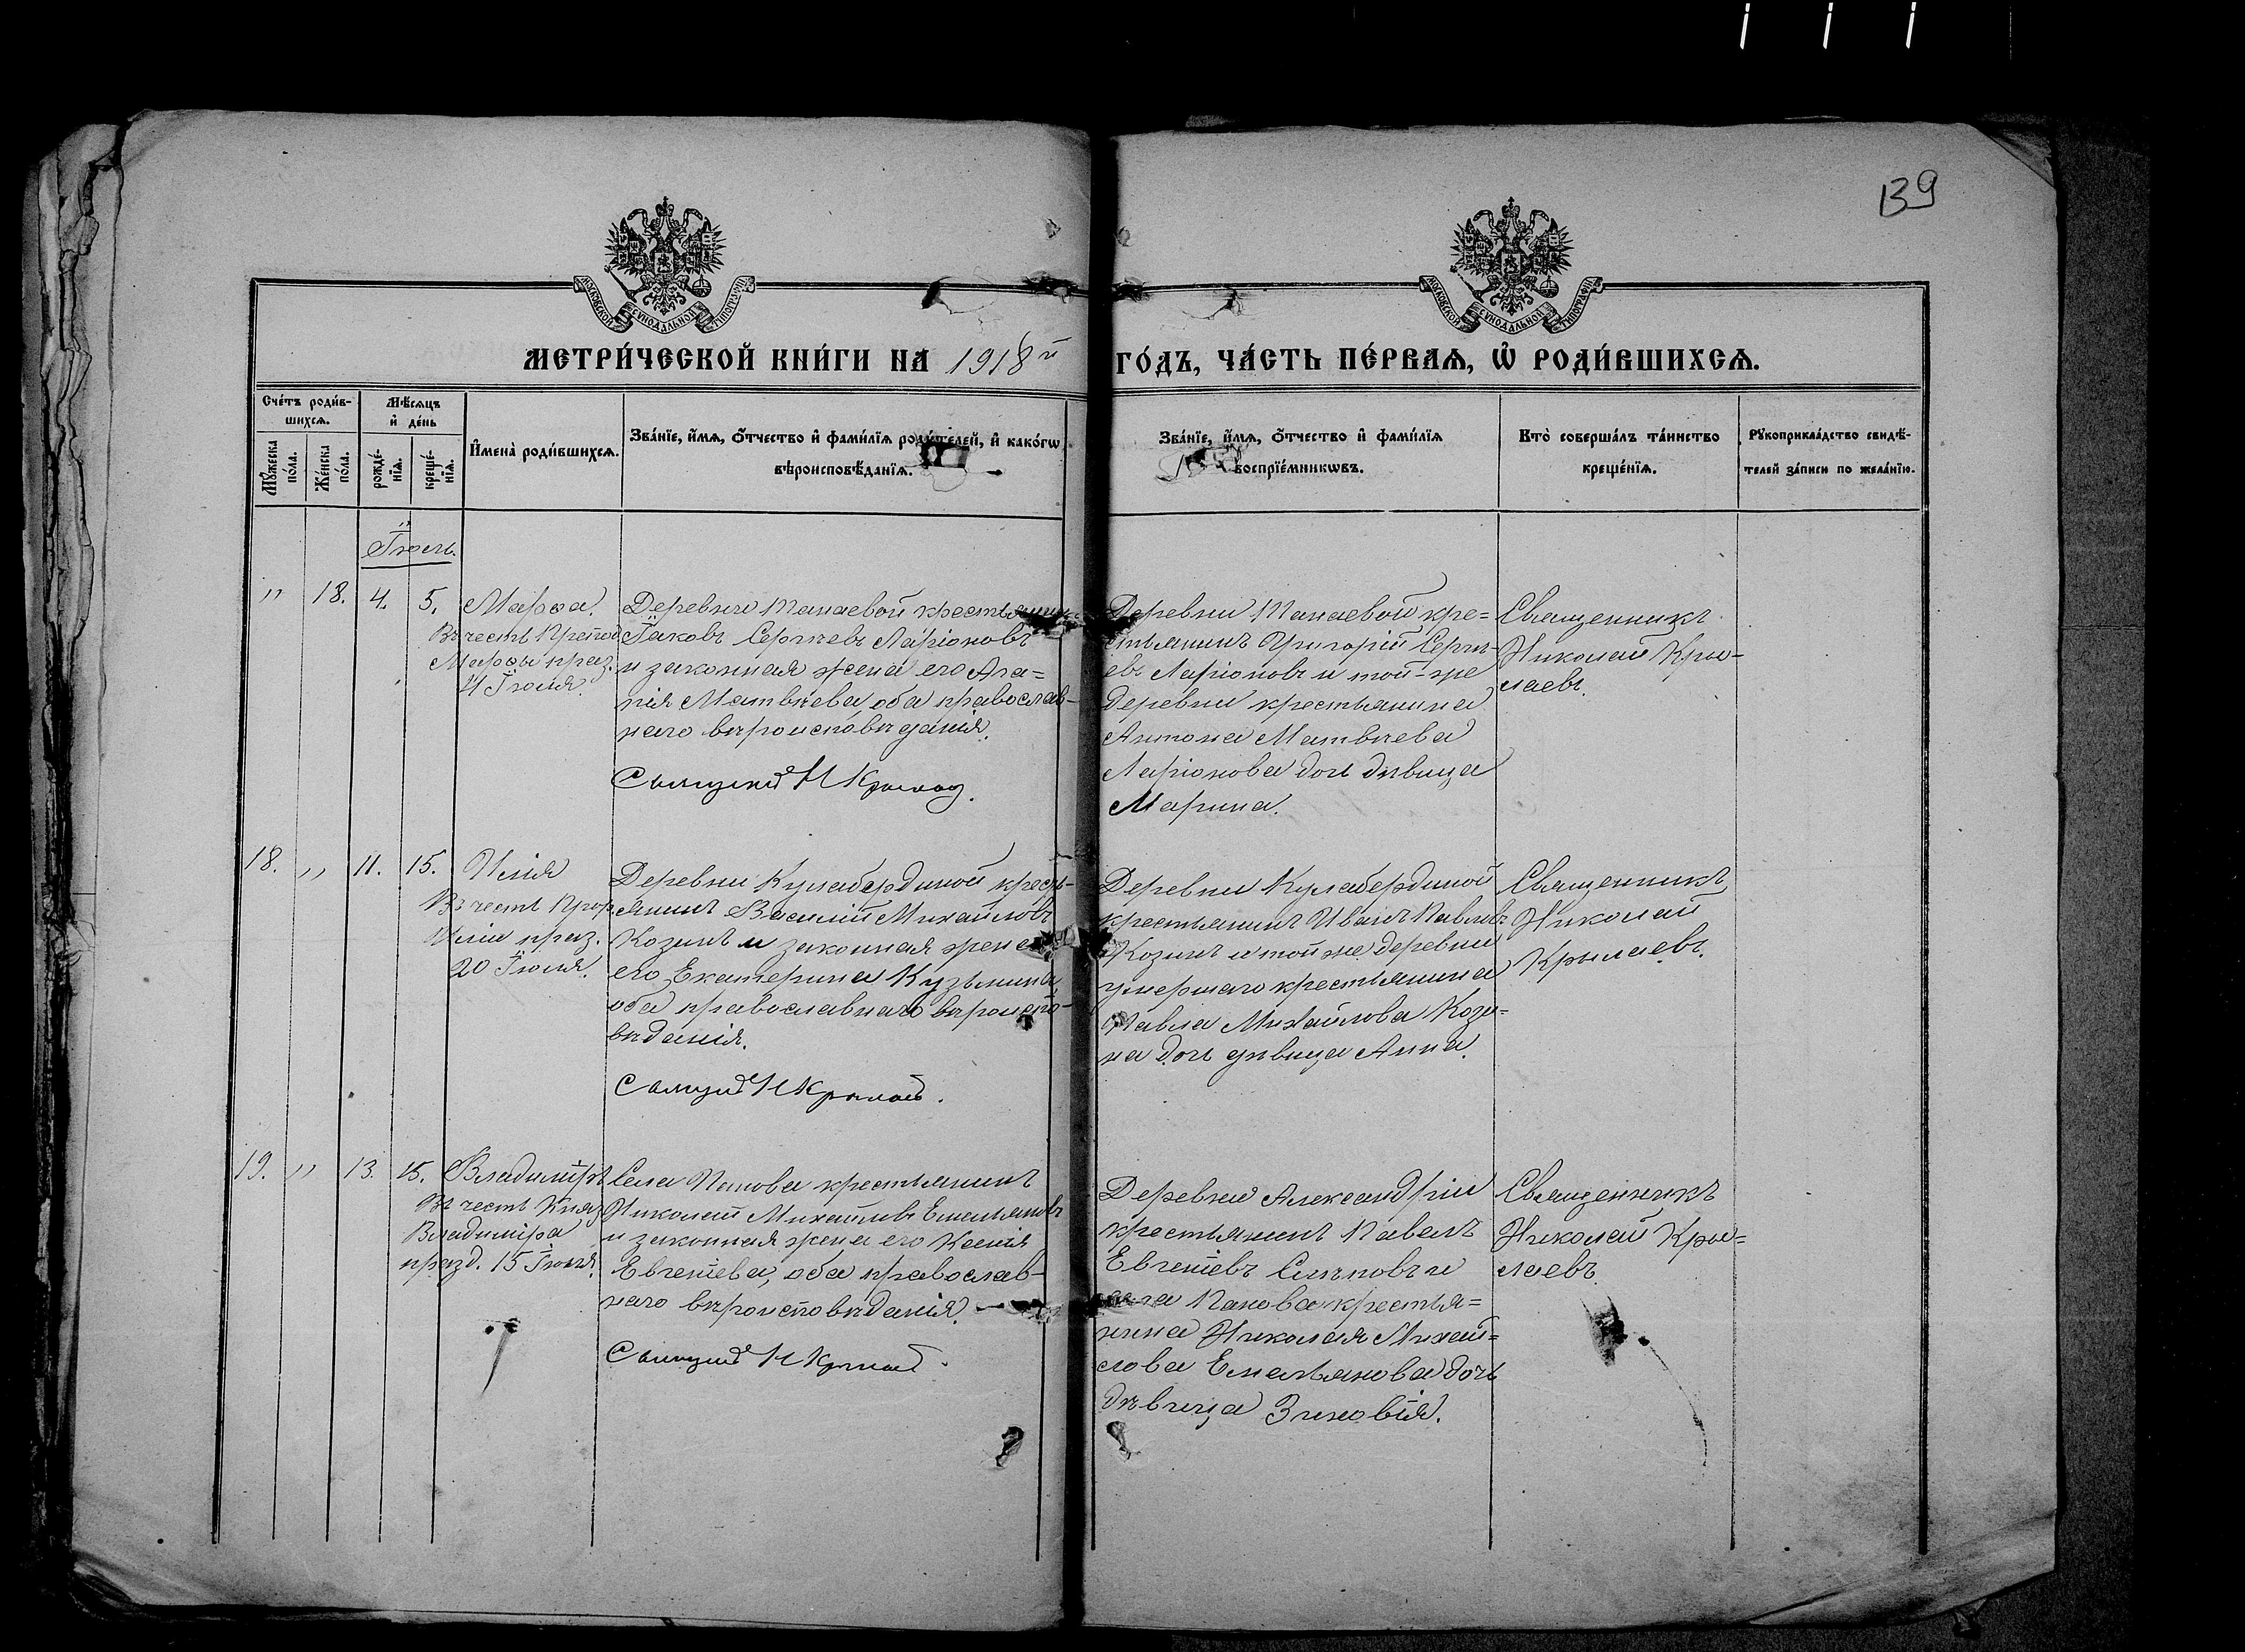 139
МОСКОВСКОЙ СѴНОДАЛЬНОЙ ТИПОГРАФІИ
МОСКОВСКОЙ СѴНОДАЛЬНОЙ ТИПОГРАФІИ
МЕТРИ́ЧЕСКОЙ КНИ́ГИ НА 1918й ГО́ДЪ, ЧА́СТЬ ПЕ́РВАѦ, Ѡ҆ РОДИ́ВШИХСѦ.
Сче́тъ роди́в-
шихсѧ.
Мꙋ́жеска
по́ла.
Же́нска
по́ла.
Мѣ́сѧцъ
и҆ де́нь
рожде́-
нїѧ.
креще́-
нїѧ.
И҆мена̀ роди́вшихсѧ.
Зва́нїе, и҆́мѧ, ѻ҆́тчество и҆ фами́лїѧ роди́телей, и҆ како́гѡ
вѣроисповѣ́данїѧ.
Зва́нїе, и҆́мѧ, ѻ҆́тчество и҆ фами́лїѧ
воспрїе́мникѡвъ.
Кто̀ соверша́лъ та́инство
креще́нїѧ.
Рꙋкоприкла́дство свидѣ́-
телей за́писи по жела́нїю.
Іюль.
" 18. 4. 5.
Марѳа.
Въ честь Препод.
Марѳы праз.
4 Іюля.
Деревни Танаевой крестьянинъ
Іаковъ Сергѣевъ Ларіоновъ
и законная жена его Ага=
пія Матвѣева, оба православ-
наго вѣроисповѣданія.
Священникъ Н Крылаевъ.
Деревни Танаевой кре=
стьянинъ Григорій Сергѣ-
евъ Ларіоновъ и той-же
деревни крестьянина
Антона Матвѣева
Ларіонова дочь дѣвица
Марина.
Священникъ
Николай Кры-
лаевъ.
18. " 11. 15.
Илія
Въ честь Прор.
Иліи праз.
20 Іюля.
Деревни Кулабердиной кресть-
янинъ Василій Михайловъ
Козинъ и законная жена
его Екатерина Кузьмина,
оба православнаго вѣроиспо-
вѣданія.
Священ Н Крылаевъ.
Деревни Кулабердиной
крестьянинъ Иванъ Павловъ
Козинъ и той же деревни
умершаго крестьянина
Павла Михайлова Кози=
на дочь дѣвица Анна.
Священникъ
Николай
Крылаевъ.
19. " 13. 15.
Владиміръ
Въ честь Княз.
Владиміра
празд. 15 Іюля.
Села Панова крестьянинъ
Николай Михайловъ Емельяновъ
и законная жена его Ксенія
Евгеніева, оба православ-
наго вѣроисповѣданія.
Священ Н Крылаевъ.
Деревни Александріи
крестьянинъ Павелъ
Евгеніевъ и
села Панова крестья=
нина Николая Михай=
лова Емельянова дочь
дѣвица Зиновія.
Священникъ
Николай Кры=
лаевъ.